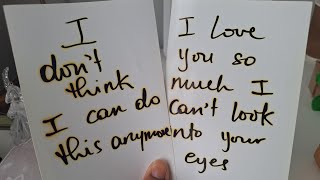 I
don't
think
I can do
this anymore
I Love
you so
much I
can't look
into your
eyes